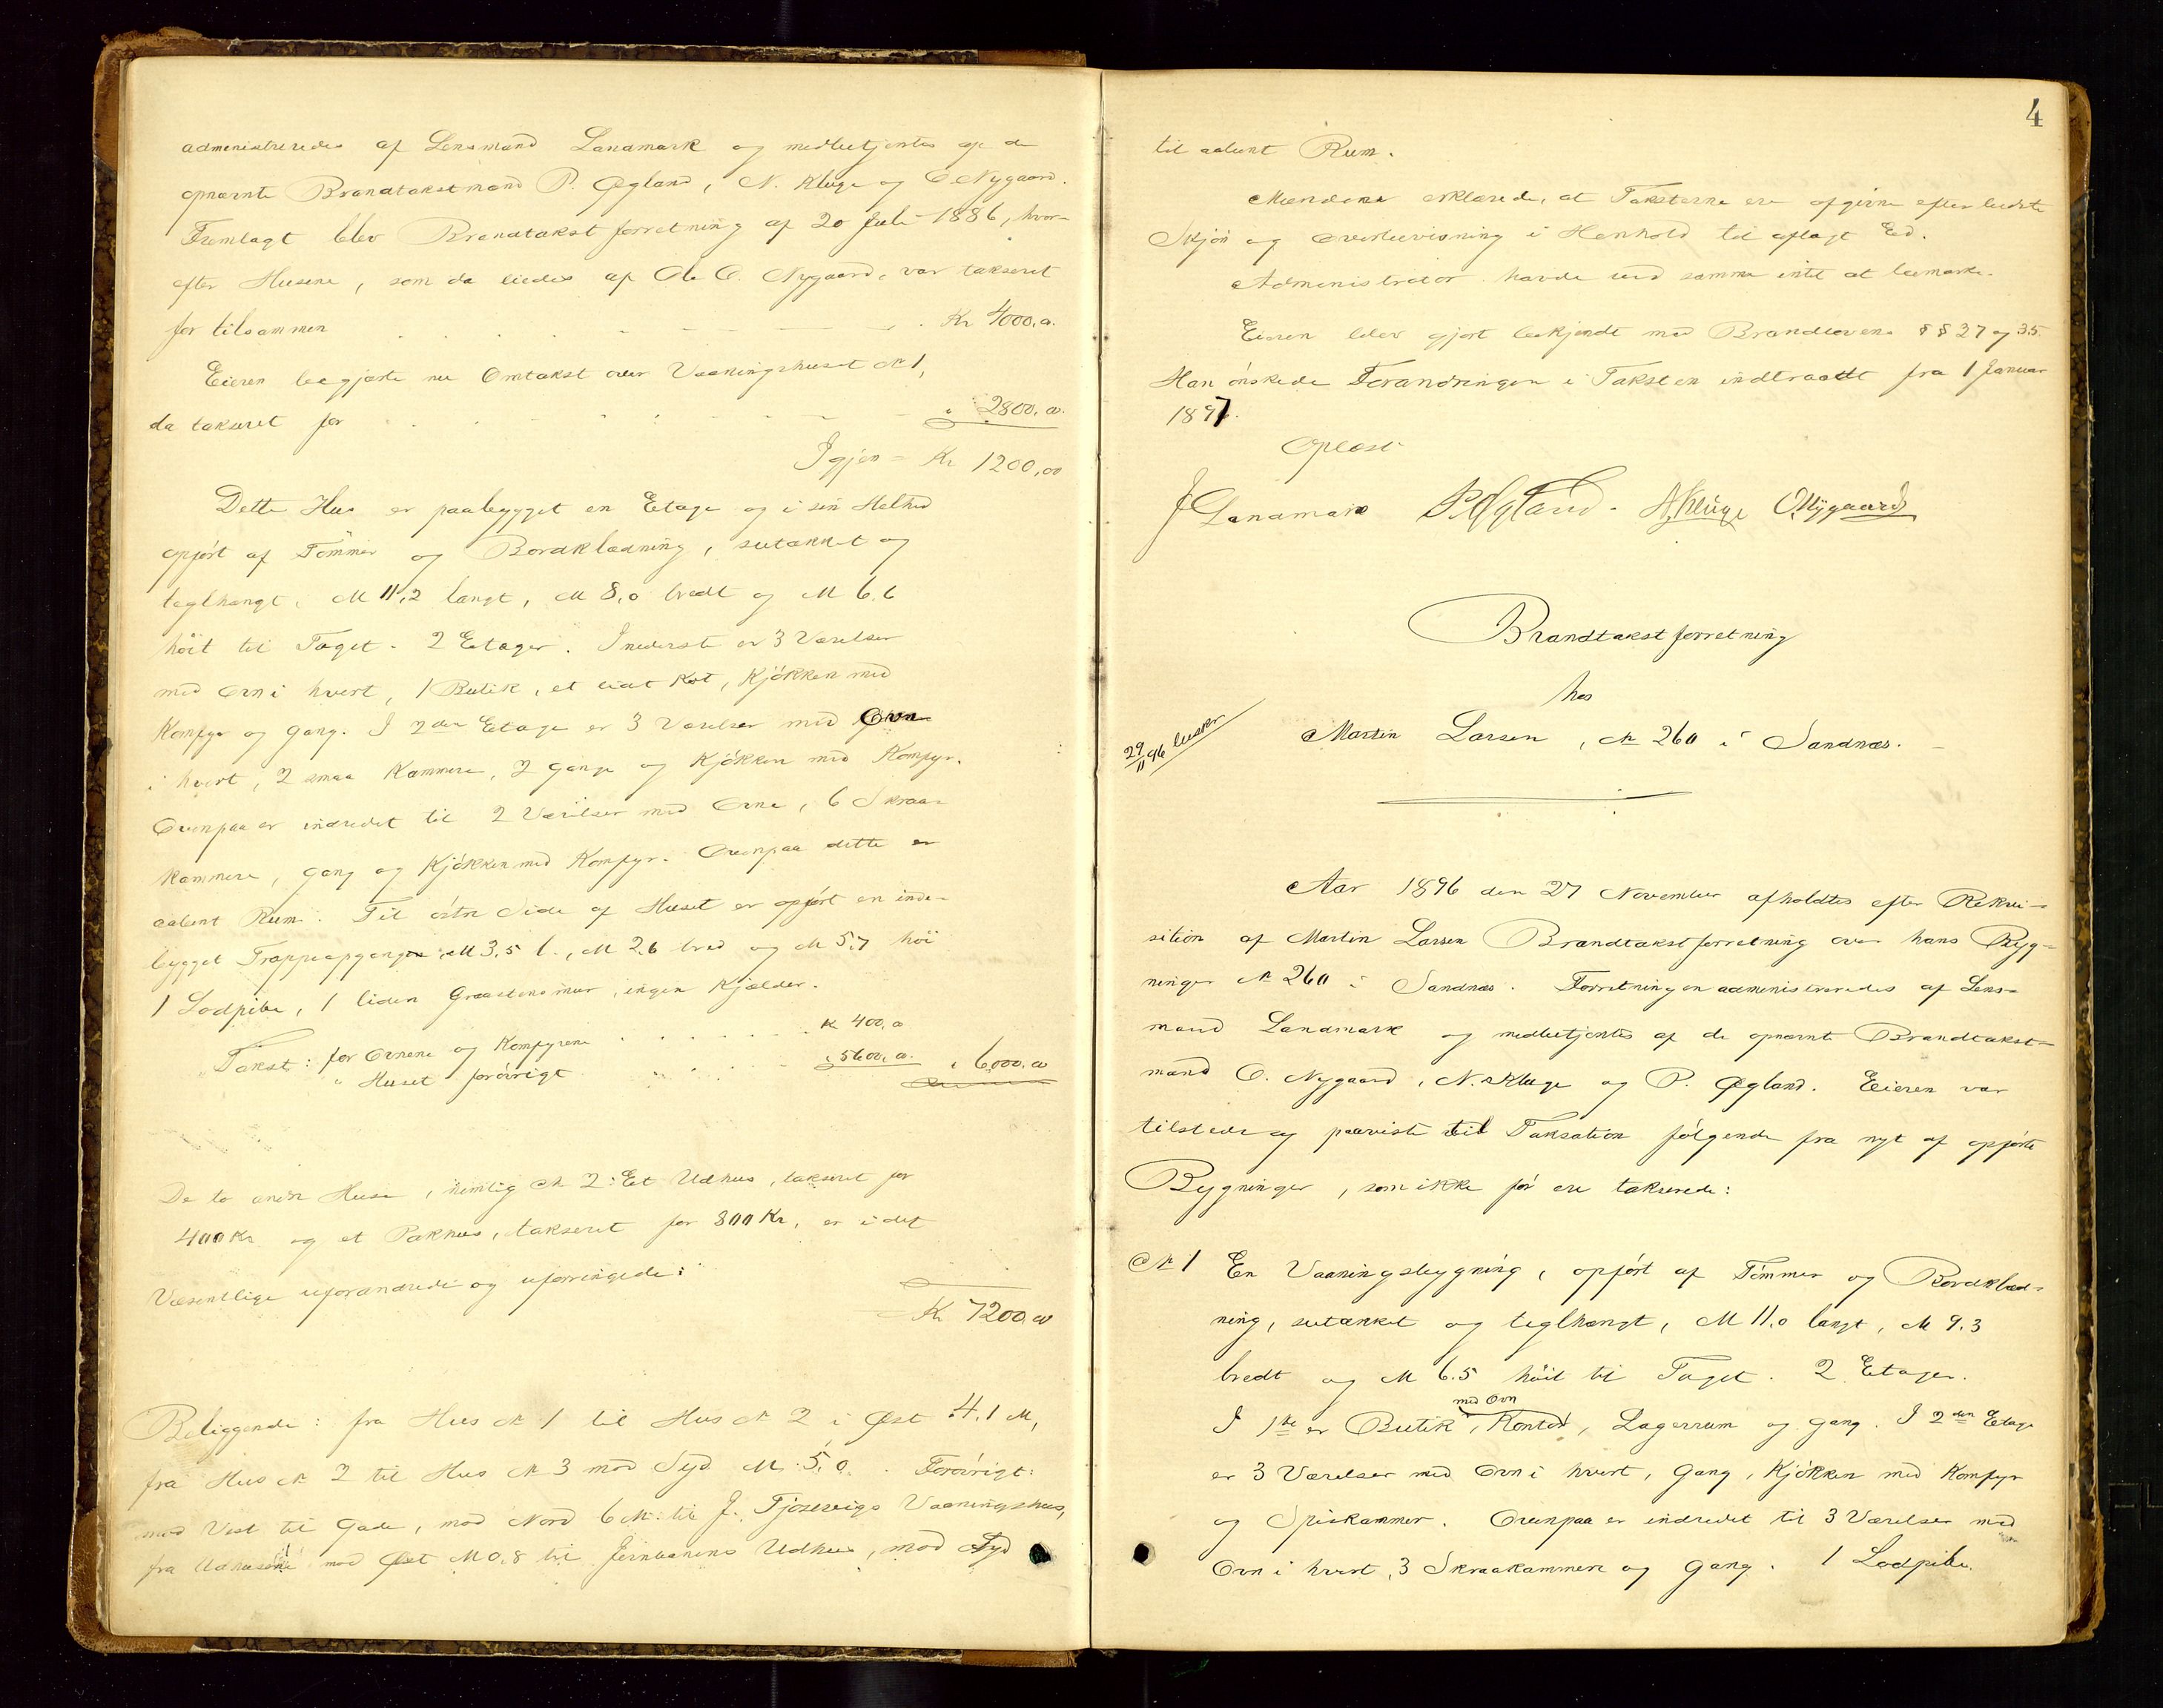 administreredes af Lensmand Landmark og medbetjentes af de
opnævnte Brandtakstmænd P. Øgland, N. Kluge og O. Nygaard.
Fremlagt blev Brandtakstforretning af 20 Juli 1886, hvor-
efter Husene, som da eiedes af Ole O. Nygaard, var takseret
for tilsammen . . . . Kr 4000,00.
Eieren begjærte nu Omtakst over Vaaningshuset № 1,
da takseret for . . . . " 2800,00.
Igjen = Kr 1200,00
Dette Hus er paabygget en Etage og i sin Helhed
opført af Tømmer og Bordklædning, sutækket og
teglhængt, M 11,2 langt, M 8,0 bredt og M 6.6
høit til Taget. 2 Etager. I nederste er 3 Værelser
med Ovn i hvert, 1 Butik, et lidet Kot, Kjøkken med
Komfyr og Gang. I 2den Etage er 3 Værelser med Ovn
i hvert, 2 smaa Kammere, 2 Gange og Kjøkken med Komfyr.
Ovenpaa er indredet til 2 Værelser med Ovne, 6 Skraa-
kammere, Gang og Kjøkken med Komfyr. Ovenpaa dette er
aabent Rum. Til østre Side af Huset er opført en inde-
bygget Trappeopgang, M 3,5 l., M 2,6 bred og M 5,7 høi
1 Lodpibe, 1 liden Graastensmur, ingen Kjælder.
Takst: for Ovnene og Komfyrene . . . . Kr 400,00
" Huset forøvrigt . . . . " 5600,00. " 6000,00
De to andre Huse, nemlig № 2: Et Udhus, takseret for
400 Kr og et Pakhus, takseret for 800 Kr, er i det
Væsentlige uforandrede og uforringede:
Kr 7200,00
Beliggende: fra Hus № 1 til Hus № 2 i Øst 4.1 M,
fra Hus № 2 til Hus № 3 mod Syd M 5,0. Forøvrigt:
mod Vest til Gade, mod Nord 6 M. til J. Vaaningshus,
fra Udhusene mod Øst M 0,8 til Jernbanens Udhus, mod Syd
4
til aabent Rum.
Mændene erklærede, at Taksterne ere afgivne efter bedste
Skjøn og Overbevisning i Henhold til aflagt Ed.
Administrator havde ved samme intet at bemærke.
Eieren blev gjort bekjendt med Brandlovens §§ 27 og 35.
Han ønskede Forandringen i Taksten indtraadt fra 1 Januar
1897.
Oplæst.
J Landmark P. Øgland. N. Kluge O Nygaard
Brandtakstforretning
hos
29/11 96 beskr
Martin Larsen, № 260 i Sandnæs.
Aar 1896 den 27 November afholdtes efter Rekvi-
sition af Martin Larsen Brandtakstforretning over hans Byg-
ninger № 260 i Sandnæs. Forretningen administreredes af Lens-
mand Landmark og medbetjentes af de opnævnte Brandtakst-
mænd O. Nygaard, N. Kluge og P. Øgland. Eieren var
tilstede og paaviste til Taksation følgende fra nyt af opførte
Bygninger, som ikke før ere takserede:
№ 1 En Vaaningsbygning, opført af Tømmer og Bordklæd-
ning, sutækket og teglhængt, M 11,0 langt, M 9.3
bredt og M 6.5 høit til Taget. 2 Etager.
med Ovn
I 1ste er Butik, Kontor, Lagerrum og Gang. I 2den Etage
er 3 Værelser med Ovn i hvert, Gang, Kjøkken med Komfyr
og Spiskammer. Ovenpaa er indredet til 3 Værelser med
Ovn i hvert, 3 Skraakammere og Gang. 1 Lodpibe.